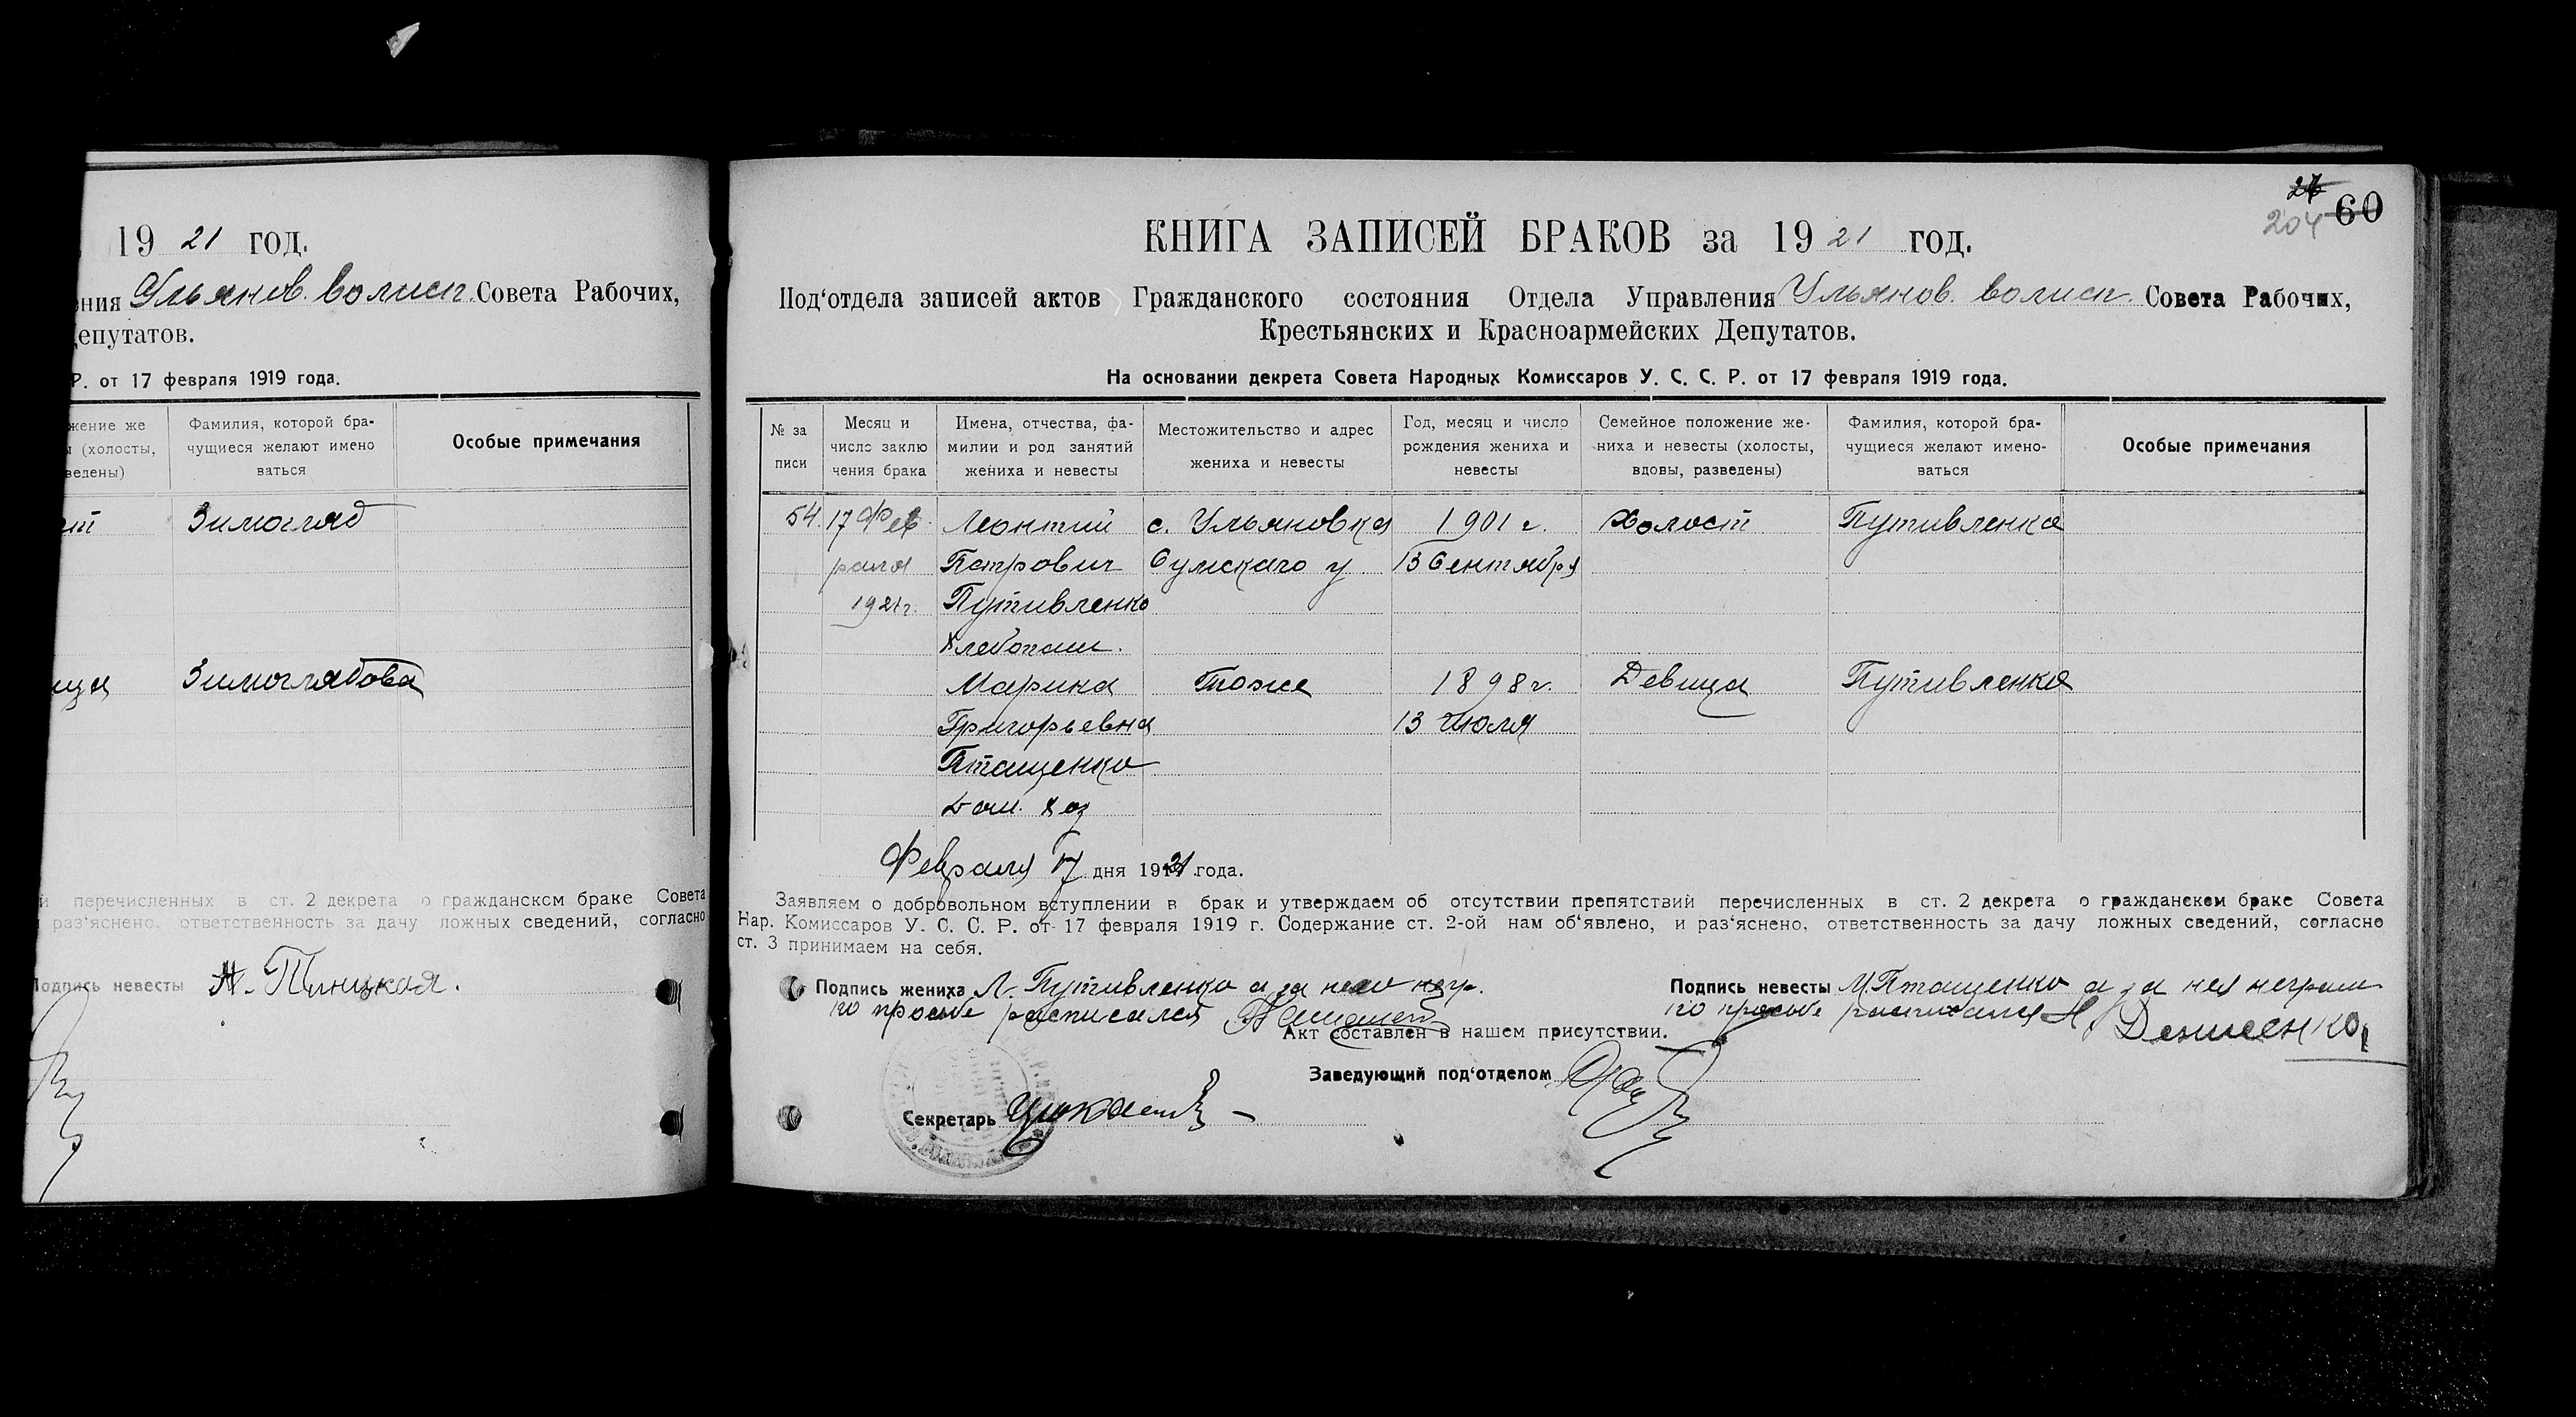 19 21 год.
ения Ульянов. волисп. Совета Рабочих,
епутатов.
Р. от 17 февраля 1919 года.
жение же
(холосты,
ведены)
Фамилия, которой бра-
чущиеся желают имено
ваться
Особые примечания
Зимогляд
ица Зимоглядова
перечисленных в ст. 2 декрета о гражданском браке Совета
раз'яснено, ответственность за дачу ложных сведений, согласно
Подпись невесты
26
204 60
КНИГА ЗАПИСЕЙ БРАКОВ за 19 21 год.
Под'отдела записей актов Гражданского состояния Отдела Управления Ульянов. волисп. Совета Рабочих,
Крестьянских и Красноармейских Депутатов.
На основании декрета Совета Народных Комиссаров У. С. С. Р. от 17 февраля 1919 года.
№ за
писи
Месяц и
число заклю
чения брака
Имена, отчества, фа-
милии и род занятий
жениха и невесты
Местожительство и адрес
жениха и невесты
Год, месяц и число
рождения жениха и
невесты
Семейное положение же-
ниха и невесты (холосты,
вдовы, разведены)
Фамилия, которой бра-
чущиеся желают имено-
ваться
Особые примечания
54. 17 Фев- Леонтий с. Ульяновка 1901 г. Холост Путивленко
раля Петрович Сумскаго у 13 Сентября
1921 г. Путивленко
Хлебопаш.
Марина Тоже 1898 г. Девица Путивленко
Григорьевна 13 Июля
Пташенко
Дом. хоз
Февраля 17 дня 1921 года.
Заявляем о добровольном вступлении в брак и утверждаем об отсутствии препятствий перечисленных в ст. 2 декрета о гражданском браке Совета
Нар. Комиссаров У. С. С. Р. от 17 февраля 1919 г. Содержание ст. 2-ой нам об'явлено, и раз'яснено, ответственность за дачу ложных сведений, согласно
ст. 3 принимаем на себя.
Подпись жениха Л. Путивленко а за него негр.
по просьбе расписался
Подпись невесты М. Пташенко а за нея неграм
по просьбе расписался Н. Денисенко
Акт составлен в нашем присутствии.
Заведующий под'отделом
Секретарь